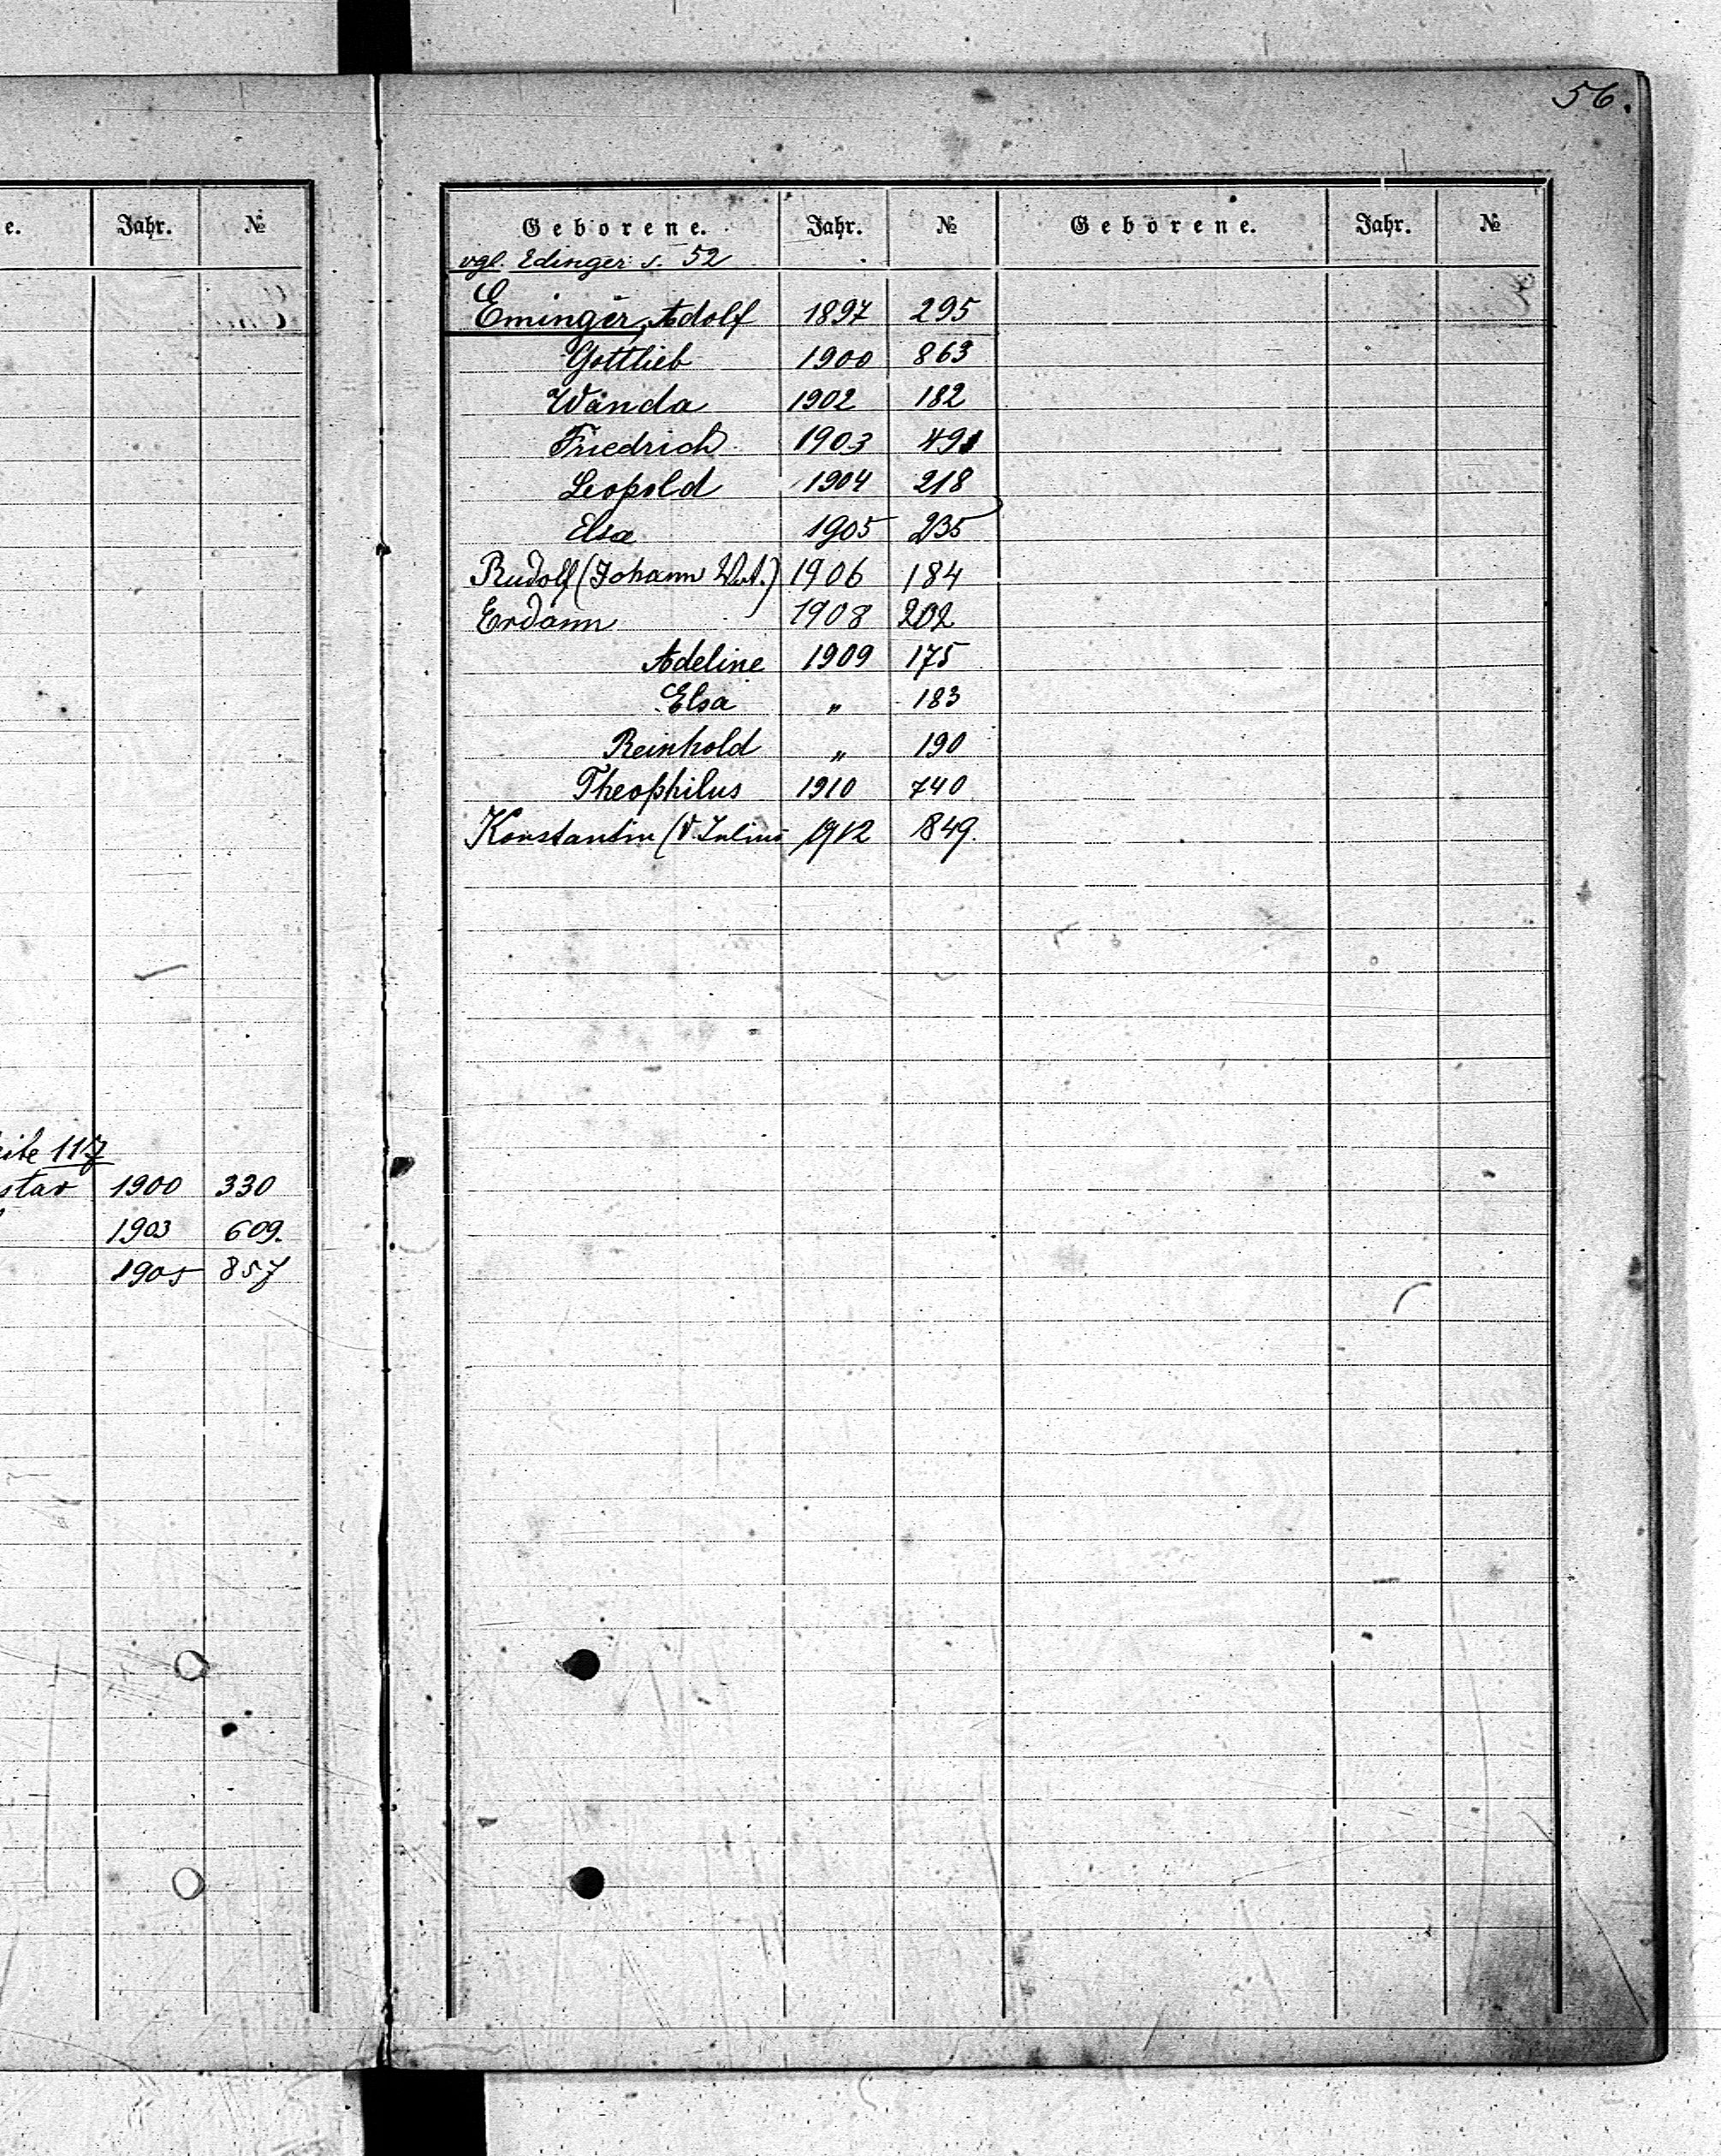 56.
e. Jahr. №
eite 117
star 1900 330
1903 609.
1905 857
Geborene. Jahr. № Geborene. Jahr. №
vgl. Edinger s. 52
Eminger, Adolf 1897 295
Gottlieb 1900 863
Wanda 1902 182
Friedrich 1903 491
Leopold 1904 218
Elsa 1905 235
Rudolf (Johann 1906 184
Erdann 1908 202
Adeline 1909 175
Elsa " 183
Reinhold " 190
Theophilus 1910 740
Konstantin (V. Julius 1912 849.